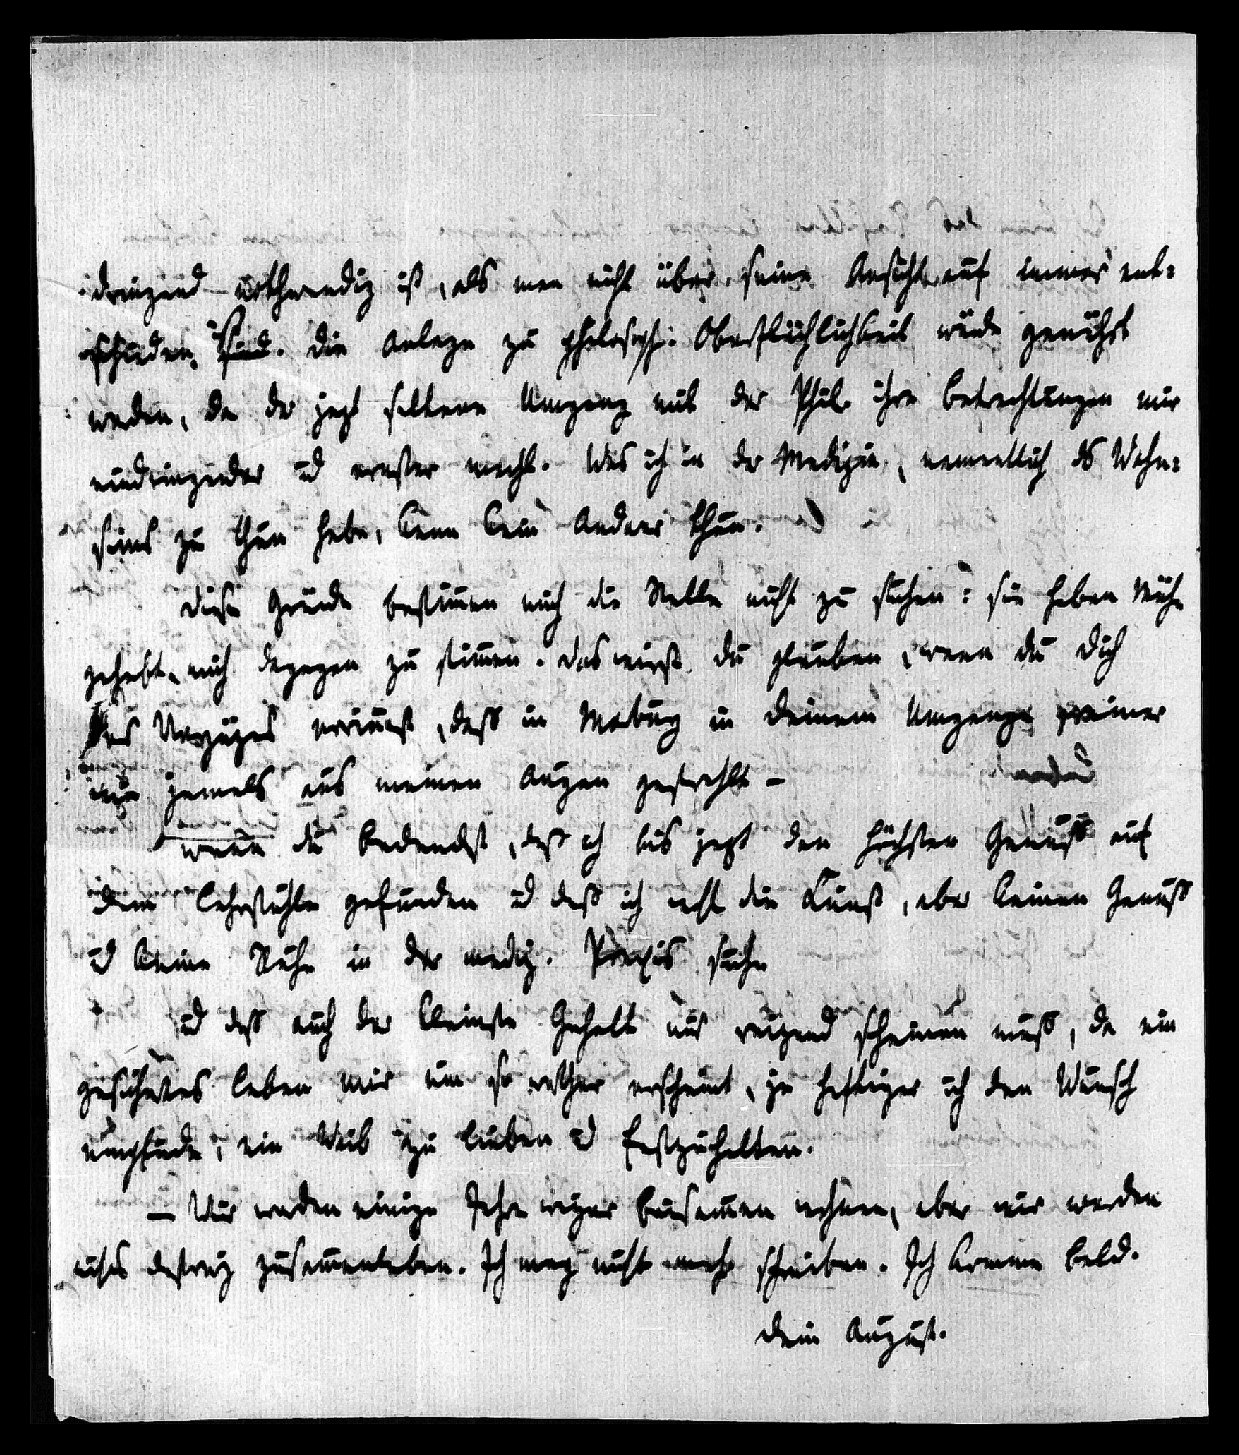 dringend nothwendig ist, als man nicht über seine Ansicht auf immer ent=
schieden ist. Die Anlage zu philosoph: Oberflächlichkeit würde genährt
werden, da der jezt seltene Umgang mit der Phil. ihre Betrachtungen mir
eindringender ud ernster macht. Was ich in der Medizin, namentlich ds Wahn=
sinns zu thun habe, kann kein Andrer thun.
Diese Gründe bestimmen mich die Stelle nicht zu suchen: sie haben Mühe
gehabt, mich dagegen zu stimmen. Das wirst du glauben, wenn du Dich
des Vergnügens erinnerst, daß in Marburg in Deinem Umgange
jemals aus meinen Augen gestrahlt –
wenn du bedenkst, daß ich bis jezt den höchsten Genuß auf
dem Lehrstuhle gefunden ud daß ich wohl die Kunst, aber keinen Genuß
ud keine Ruhe in der mediz. Praxis suche
ud daß auch der kleinste Gehalt mir reizend scheinen muß, da ein
gesichertes Leben mir um so erscheint, je heftiger ich den Wunsch
empfinde, ein Weib zu lieben ud festzuhalten.
— Wir werden einige Jahre wohnen, aber wir werden
zusammenleben. Ich mag nicht mehr schreiben. Ich komme bald.
Dein August.